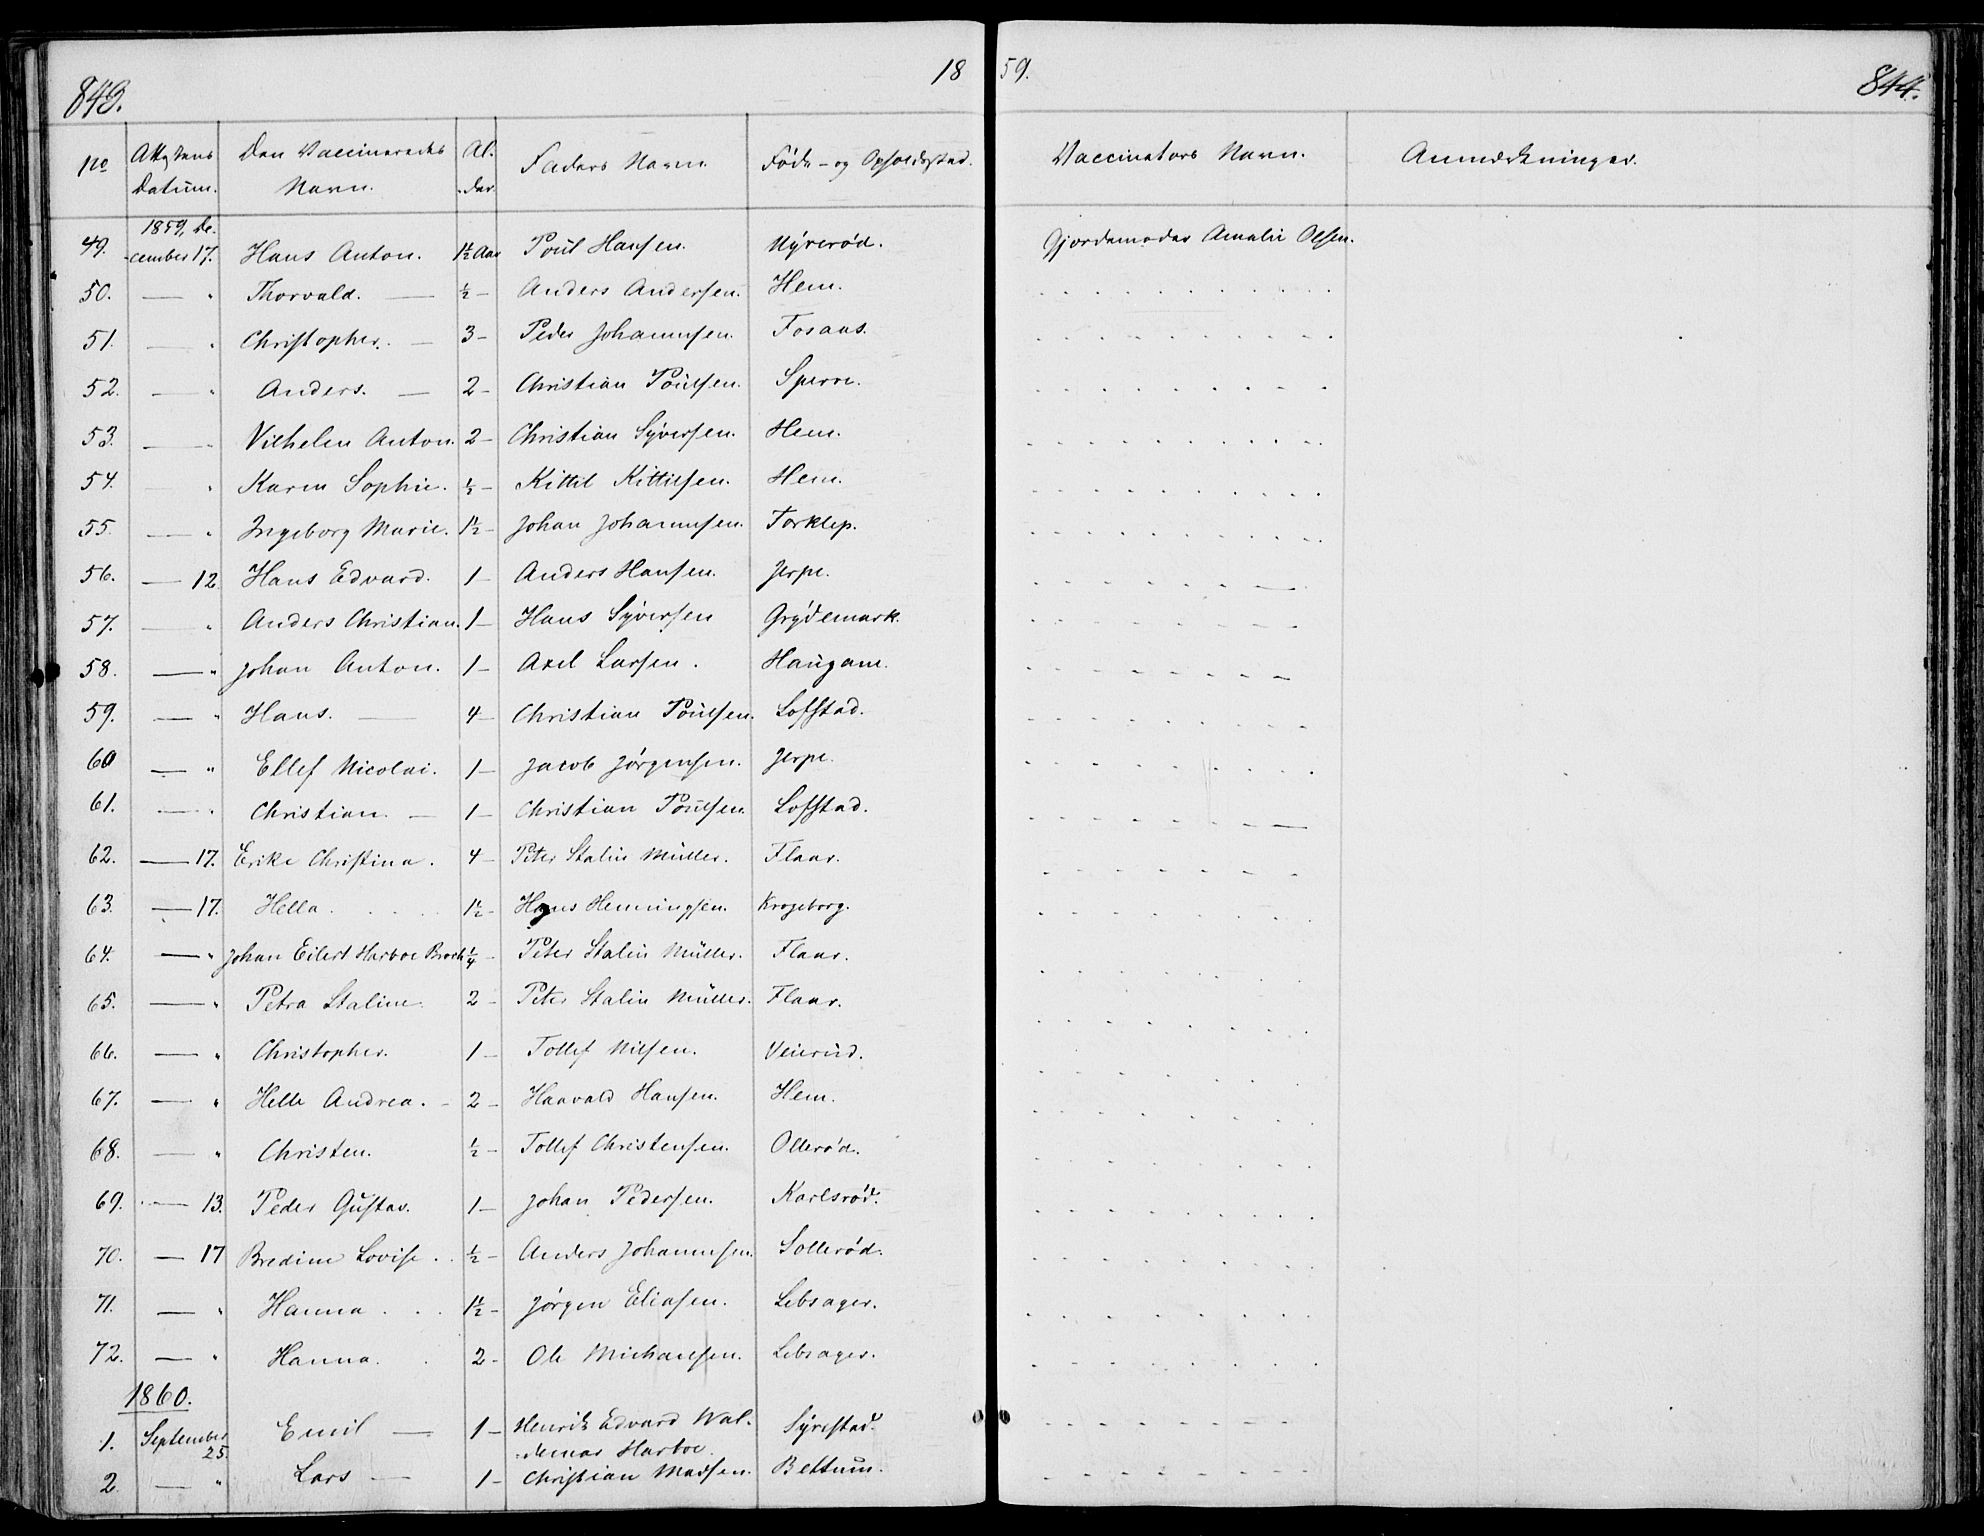 843.
18
59.
844.
No
Attestens Datum.
Den Vaccineredes Navn.
Al-der.
Faders Navn.
Føde- og Opholdssted.
Vaccinators Navn.
Anmærkninger.
49. 1859, De-cember 17. Hans Anton. 1½ Aar Poul Hansen. Nÿrerød. Gjordemoder Amalie Olsen.
50. — " Thorvald. — ½ — Anders Andersen. Hem.
51. — " Christopher. — 3 — Peder Johannesen. Fosaas.
52. — " Anders. — 2 — Christian Poulsen. Sperre.
53. — " Vilhelm Anton. 2 — Christian Sÿversen. Hem.
54. — " Karen Sophie. ½ — Kittil Kittilsen. Hem.
55. — " Ingeborg Marie. 1½ — Johan Johannesen. Torklep.
56. — 12. Hans Edvard. 1 — Anders Hansen. Jerpe.
57. — " Anders Christian. 1 — Hans Sÿversen Grÿdemark.
58. — " Johan Anton. 1 — Axel Larsen. Haugane.
59. — " Hans. — 4 — Christian Poulsen. Lofstad.
60 — " Ellef Nicolai. 1 — Jacob Jørgensen. Jerpe.
61. — " Christian. — 1 — Christian Poulsen. Lofstad.
62. — 17. Erike Christina. 4 — Peter Stalin Müller. Flaar.
63. — 17. Hella. 1½ — Hans Henningsen. Krogeborg.
64. — " Johan Eilert Harboe Broch ¼ — Peter Stalin Müller. Flaar.
65. — " Petra Staline. 2 — Peter Stalin Müller. Flaar.
66. — " Christopher. 1 — Tollef Nilsen. Veierud.
67. — " Helle Andrea. — 2 — Haavald Hansen. Hem.
68. — " Christen. ½ — Tollef Christensen. Ollerød.
69. — 13. Peder Gustav. 1 — Johan Pedersen. Karlsrød.
70. — 17 Bredine Lovise. ½ — Anders Johannesen. Sollerød.
71. — " Hanna. 1½ — Jørgen Eliasen. Lebsager.
72. — " Hanna. 2 — Ole Michaelsen. Lebsager.
1860.
1. September 25. Emil — 1 — Henrik Edvard Wal-demar Harboe. Sÿrestad.
2. — " Lars — 1 — Christian Madsen. Bettum.